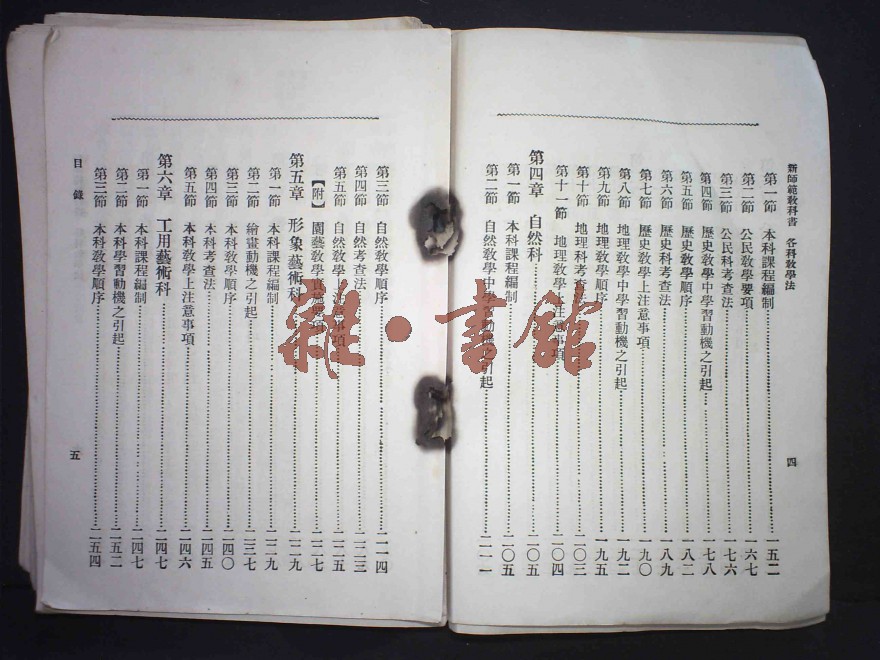 新師範敎科書　各科敎學法
第一節　本科課程編制……一五二
第二節　公民敎學要項……一六七
第三節　公民科考查法……一七六
第四節　歷史敎學中學習動機之引起……一七八
第五節　歷史敎學順序……一八二
第六節　歷史科考查法……一八九
第七節　歷史敎學上注意事項……一九〇
第八節　地理敎學中學習動機之引起……一九二
第九節　地理敎學順序……一九五
第十節　地理科考查法……二〇三
第十一節　地理敎學上注意事項……二〇四
第四章　自然科……二〇五
第一節　本科課程編制……二〇五
第二節　自然敎學中學習動機之引起……二一一
四
第三節　自然敎學順序……二一四
第四節　自然科考查法……二二三
第五節　自然敎學上注意事項……二二五
【附】　園藝敎學要項……二二七
第五章　形象藝術科……二二九
第一節　本科課程編制……二二九
第二節　繪畫動機之引起……二三七
第三節　本科敎學順序……二四〇
第四節　本科考查法……二四五
第五節　本科敎學上注意事項……二四六
第六章　工用藝術科……二四七
第一節　本科課程編制……二四七
第二節　本科學習動機之引起……二五二
第三節　本科敎學順序……二五四
目錄
五
雜·書館